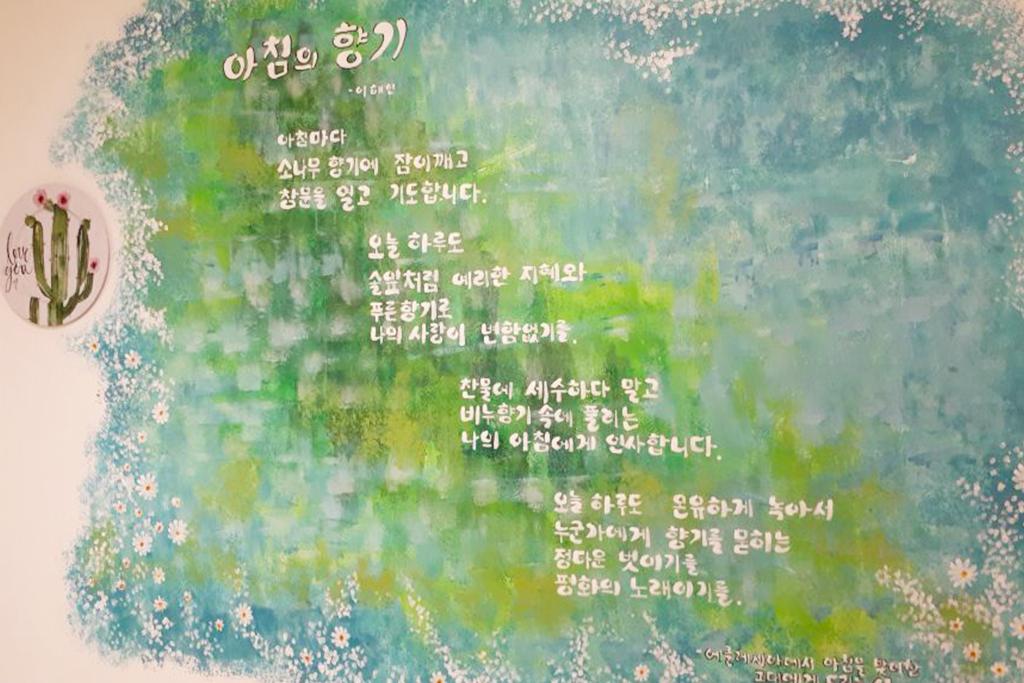 아침의 향기
-이해인
아침마다
소나무 향기에 잠이깨고
창문을 열고 기도합니다.
오늘 하루도
솔잎처럼 예리한 지혜와
푸른향기로
나의 사랑이 변함없기를.
찬물에 세수하다 말고
비누향기 속에 풀리는
나의 아침에게 인사합니다.
오늘 하루도 온유하게 녹아서
누군가에게 향기를 묻히는
정다운 벗이기를
평화의 노래이기를.
love
you
아침을 맞이한
그대에게